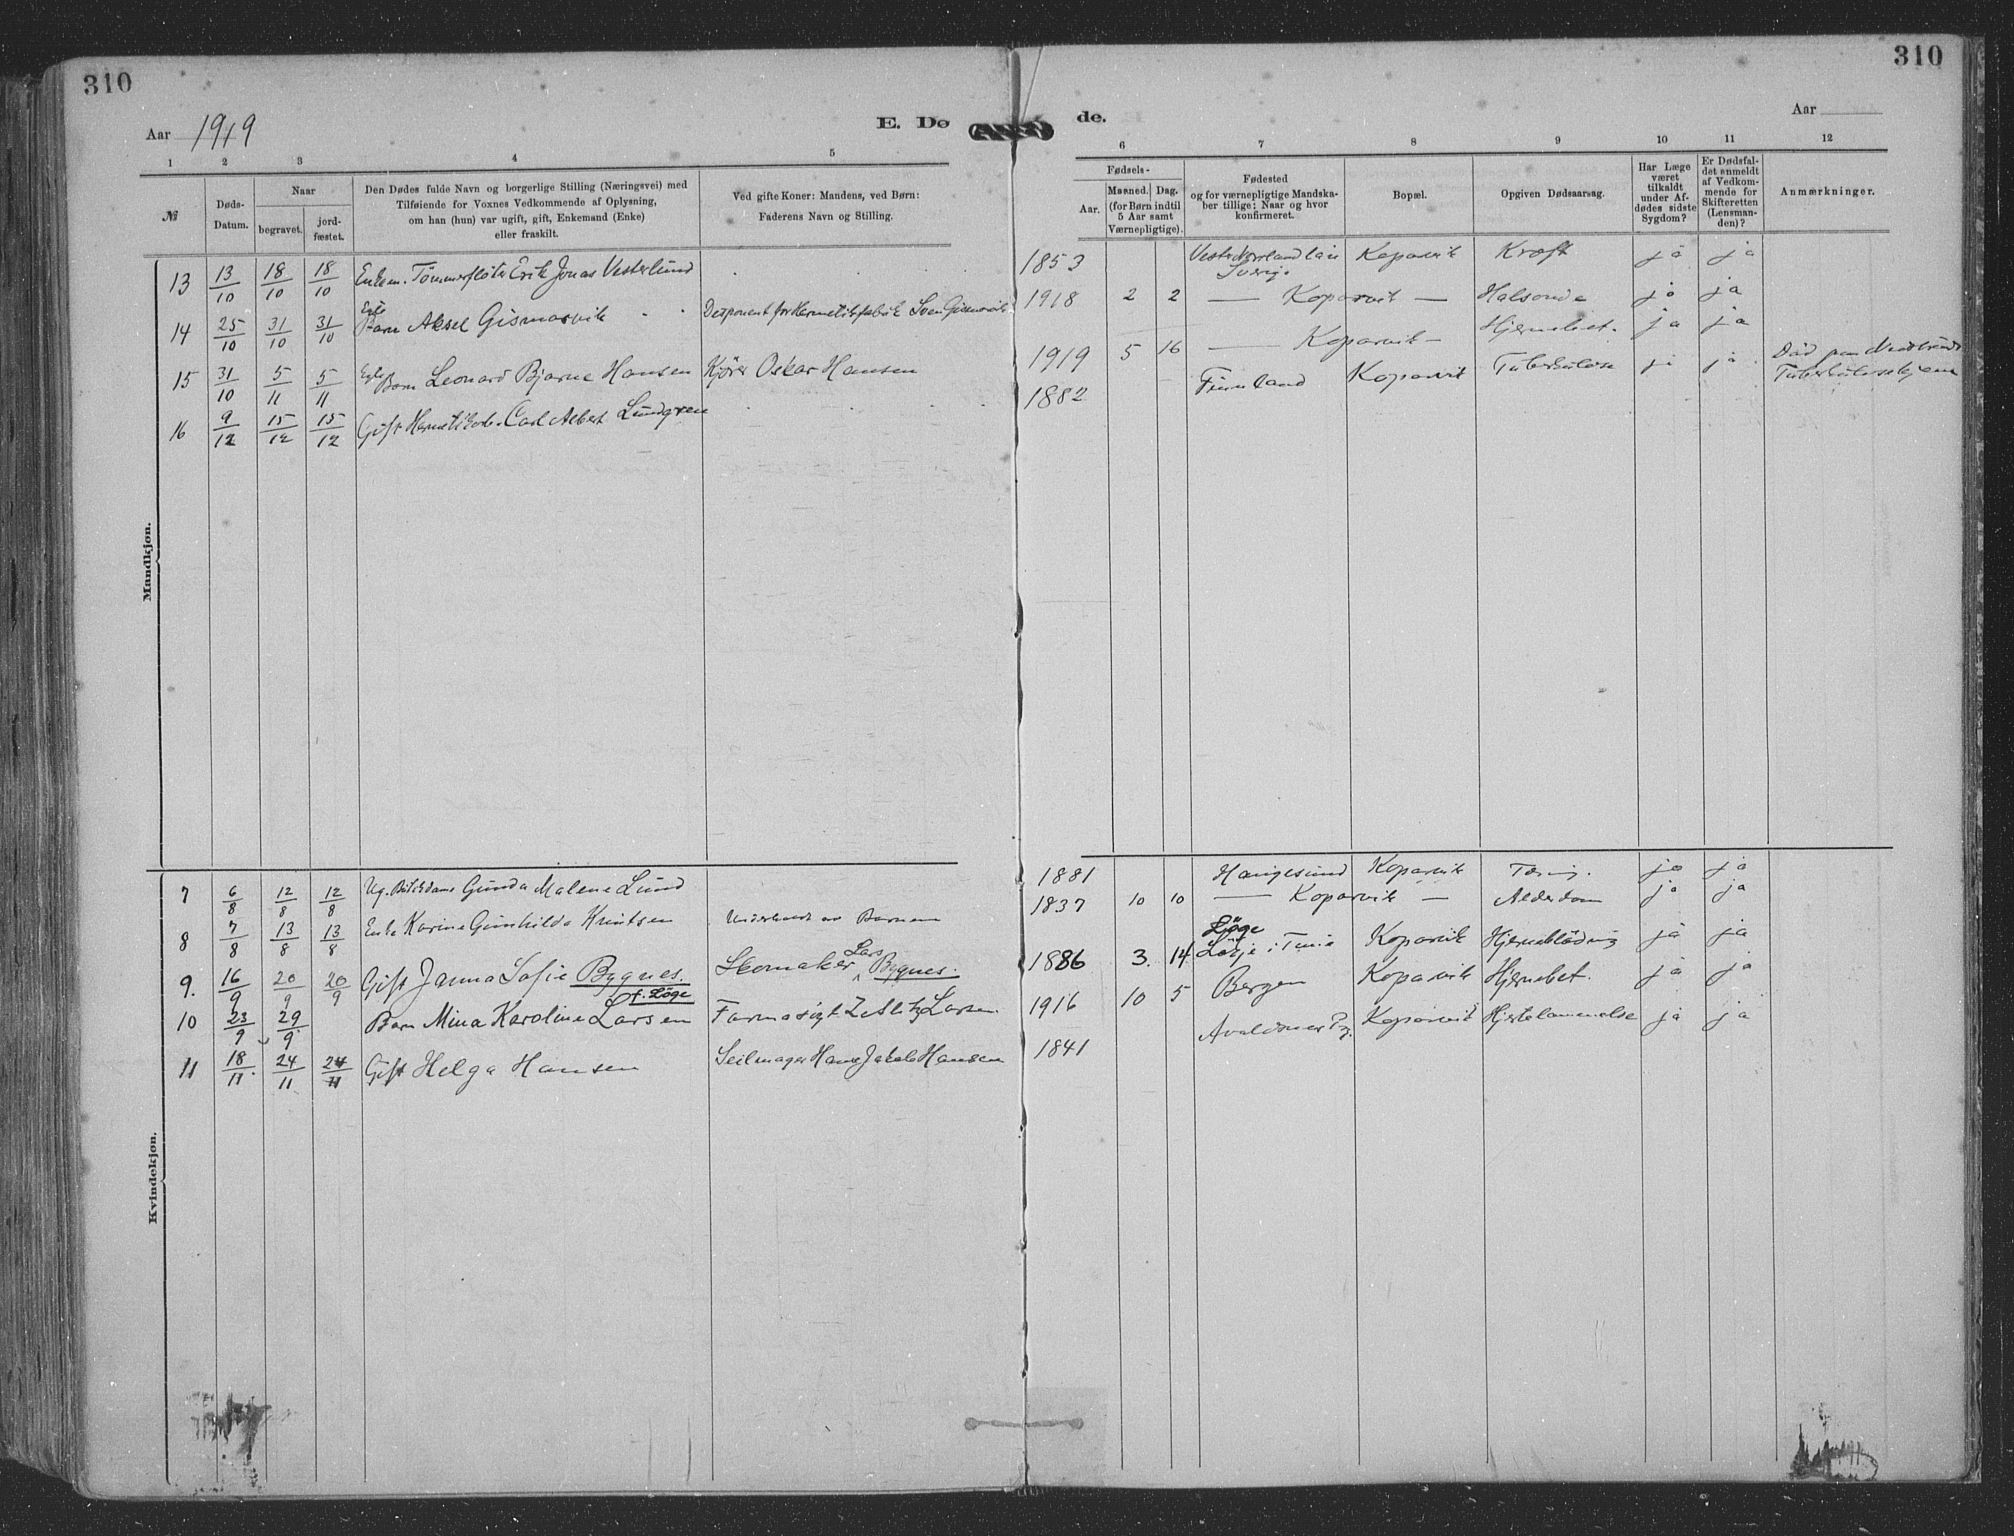 310
310
Aar 1919
E. Dø
de.
Aar
1 2 3 4 5 6 7 8 9 10 11 12
№
Døds-Datum.
Naar
begravet.
jord-fæstet.
Den Dødes fulde Navn og borgerlige Stilling (Næringsvei) med
Tilføiende for Voxnes Vedkommende af Oplysning,
om han (hun) var ugift, gift, Enkemand (Enke)
eller fraskilt.
Ved gifte Koner: Mandens, ved Børn:
Faderens Navn og Stilling.
Fødsels-
Aar.
Maaned. Dag.
(for Børn indtil
5 Aar samt
Værnepligtige).
Fødested
og for værnepligtige Mandska-
ber tillige: Naar og hvor
konfirmeret.
Bopæl.
Opgiven Dødsaarsag.
Har Læge
været
tilkaldt
under Af-
dødes sidste
Sygdom?
Er Dødsfal-
det anmeldt
af Vedkom-
mende for
Skifteretten
(Lensman-
den)?
Anmærkninger.
Mandkjøn.
13 13/10 18/10 18/10 Enkem. Tömmerflöter Erik Jonas Vesterlund 1853 Vesternorrland län Sverige Kopervik Kræft ja ja
14 25/10 31/10 31/10 Egte Barn Aksel Gismarvik Disponent for Hermetikfabrik Sven Gismarvik 1918 2 2 — Kopervik — Halsonde ja ja
Hjernebet. ja ja
15 31/10 5/11 5/11 Egte Barn Leonard Bjarne Hansen Kjörer Oskar Hansen 1919 5 16 — Kopervik —
16 9/12 15/12 15/12 Gift Hermetikarb. Carl Albert Lundgren 1882 Finnland Kopervik Tuberkulose ja ja Död paa
Kvindekjøn.
7 6/8 12/8 12/8 Ug. Butikdame Gunda Malene Lund 1881 Haugesund Kopervik Tæring. ja ja
8 7/8 13/8 13/8 Enke Karine Gunhilda Knutsen Underholdt av Barnene 1837 10 10 — Kopervik — Alderdom ja ja
9. 16/9 20/9 20/9 Gift Janna Sofie Bygnes. f. Löge Skomaker Lars Bygnes. 1886 3. 14 Löge i Kopervik Hjerneblödning ja ja
10 23/9 29/9 Barn Mina Karoline Larsen Farmasöjt Zetlitz Larsen 1916 10 5 Bergen Kopervik Hjernebet. ja ja
11 18/11 24/11 24/11 Gift Helga Hansen Seilmager Hans Jakob Hansen 1841 Avaldsnes Pg. Kopervik Hjertelammelse ja ja